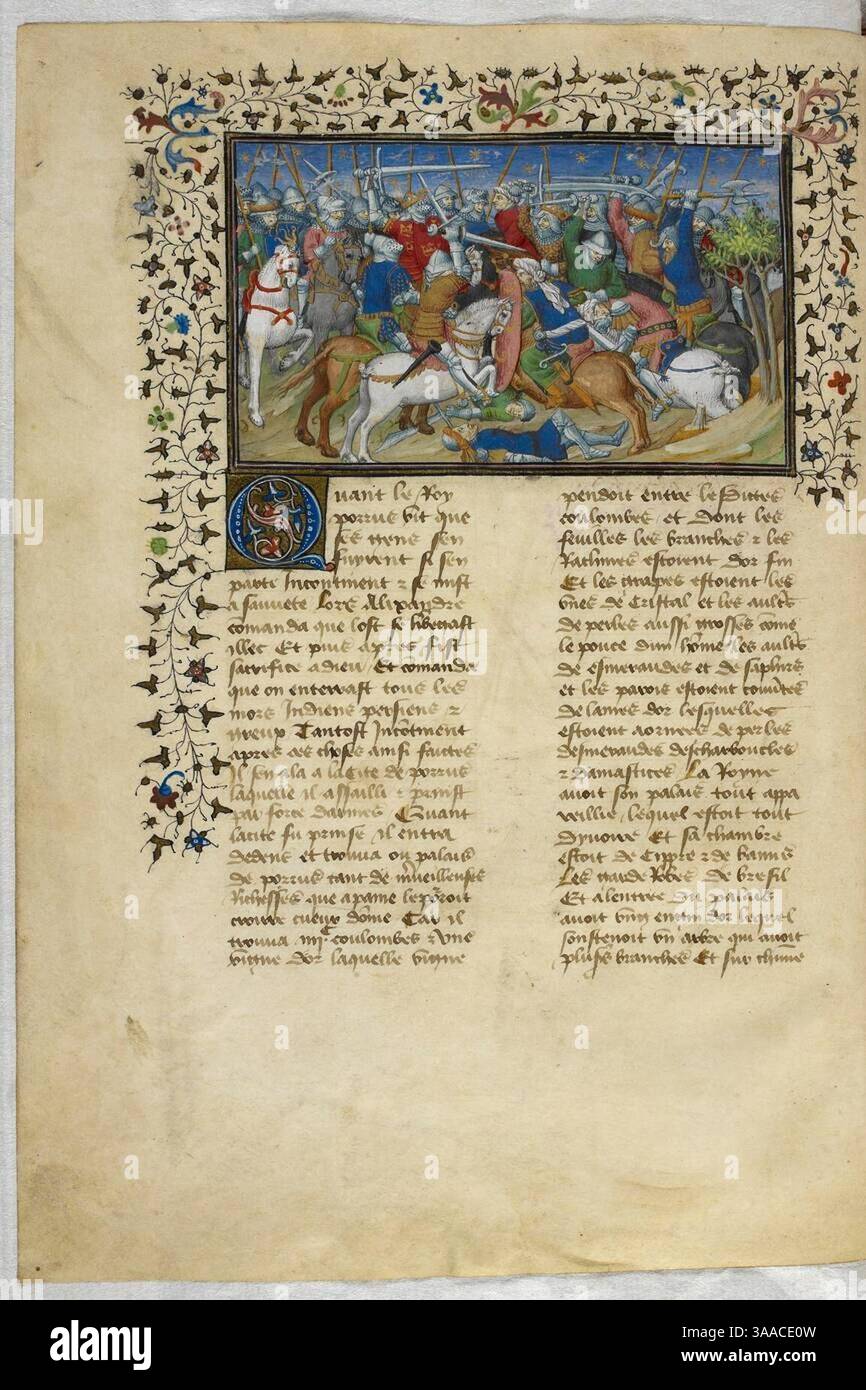 Quant le Roy
porrus vit que
ses gens sen
fuyrent si sen
party Incontinent & se mist
a sauvete Lors Alixandre
comanda que lost se hebergast
illec Et puis apres fist
sacrifice a dieu Et comanda
que on enterrast tous les
mors Indiens persiens &
greux Tantost Incontinent
apres ces choses ainsi faictes
Il sen ala a la cite de porrus
laquele il assailli & prinst
par force darmes Quant
la cite fu prinse il entra
dedens et trouva ou palais
de porrus tant de merveilleuses
Richesses que a paine le poroit
croirre cueur dome Car il
trouva iiijc coulombes & une
vigne dor laquelle vigne
pendoit entre les dictes
coulombes et dont les
feuilles les branches & les
Rachines estoient dor fin
Et les grapes estoient les
unes de Cristal et les aultres
de perles aussi grosses come
le pouce dun home les aultres
de esmeraudes et de saphirs
et les parois estoient couvertes
de lames dor lesquelles
estoient aornees de perles
desmeraudes descharboucles
& damastices La Royne
avoit son palais tout appa
reillie lequel estoit tout
dyvoire Et sa chambre
estoit de Cippre & de
Les garde Robes de bresil
Et a lentree du palais
avoit ung engin dor lequel
soustenoit un arbre qui avoit
plusieurs branches Et sur chune
alamy
Image ID: 3AACE0W
www.alamy.com